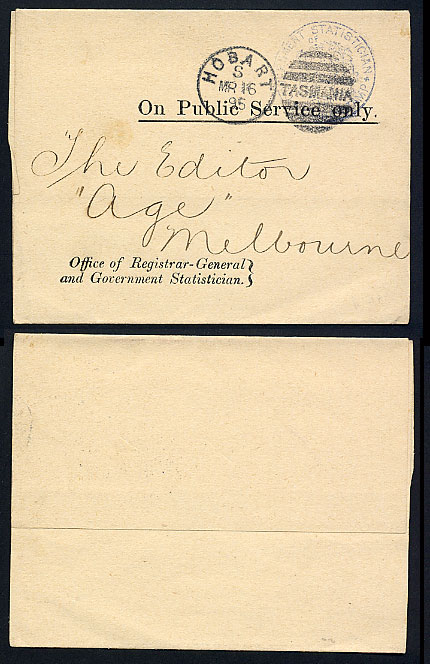 HOBART
S
MR 16
95
GOVERNMENT STATISTICIAN
TASMANIA
On Public Service only.
The Editor
"Age"
Melbourne
Office of Registrar-General
and Government Statistician.